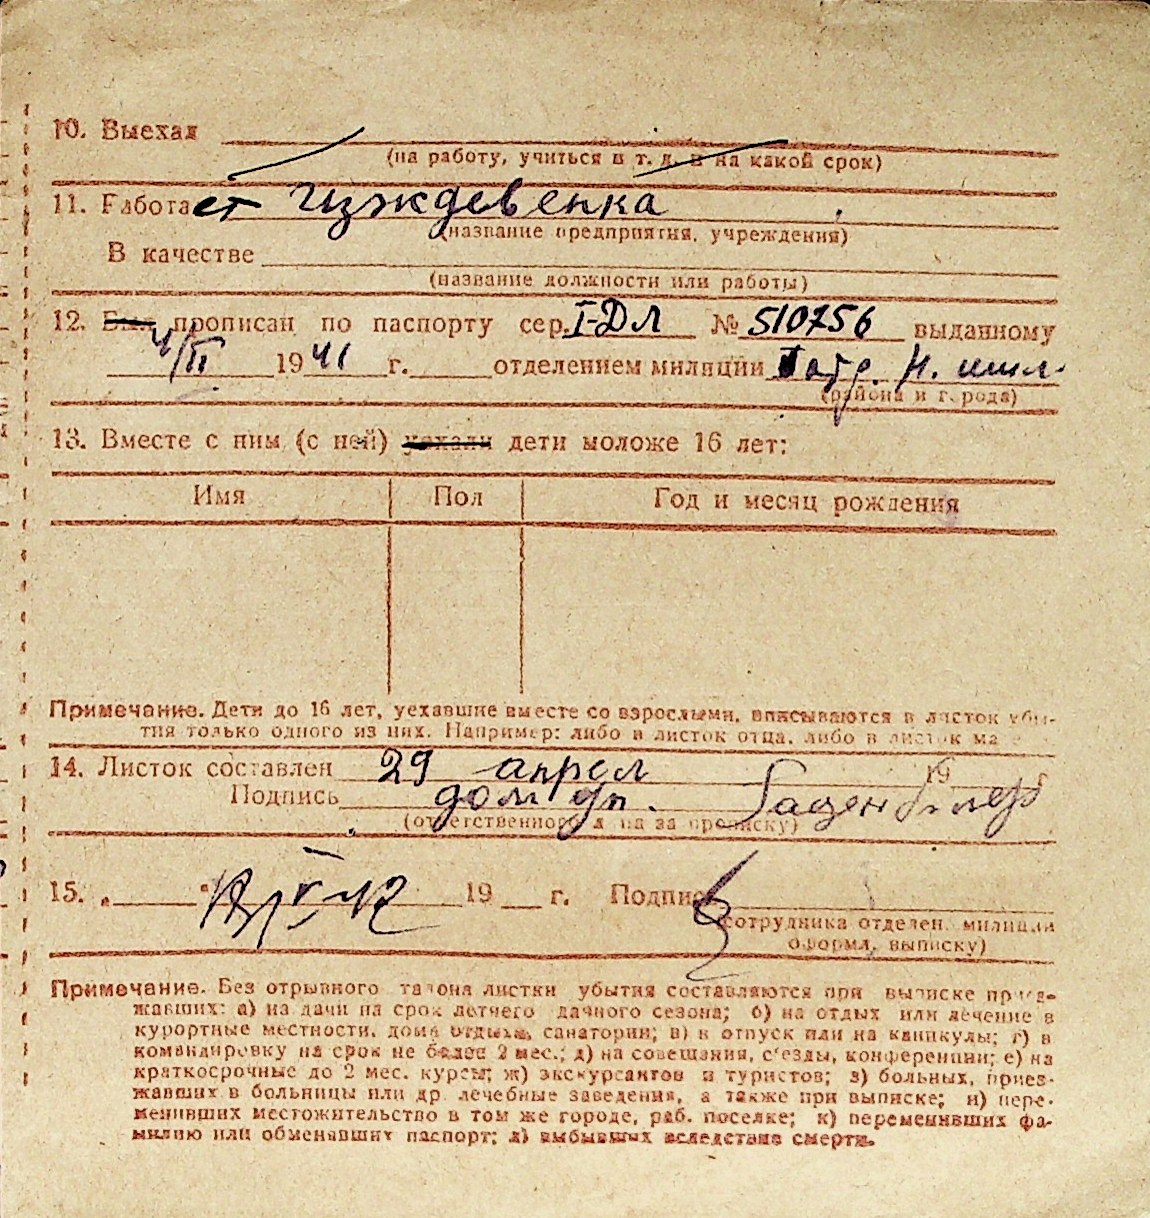 10. Выехал
(на работу, учиться и т. д. и на какой срок)
11. Работает Изждевенка
(название предприятия, учреждения)
В качестве
(название должности или работы)
12. Был прописан по паспорту сер. I-ДЛ № 510756 выданному
4/II 1941 г. отделением милиции
(района и города)
13. Вместе с ним (с ней) уехали дети моложе 16 лет:
Имя Пол Год и месяц рождения
Примечание. Дети до 16 лет, уехавшие вместе со взрослыми, вписываются в листок убы-
тия только одного из них. Например: либо в листок отца, либо в листок ма
14. Листок составлен 29 апрел 19
Подпись дом уп.
(ответственного за прописку)
15. „ “ 19 г. Подпись
сотрудника отделен. милиции
оформл. выписку)
Примечание. Без отрывного талона листки убытия составляются при выписке приез-
жавших: а) на дачи на срок летнего дачного сезона; б) на отдых или лечение в
курортные местности, дома отдыха, санатории; в) в отпуск или на каникулы; г) в
командировку на срок не более 2 мес.; д) на совещания, с'езды, конференции; е) на
краткосрочные до 2 мес. курсы; ж) экскурсантов и туристов; з) больных, приез-
жавших в больницы или др. лечебные заведения, а также при выписке; и) пере-
менивших местожительство в том же городе, раб. поселке; к) переменивших фа-
милию или обменявших паспорт; л) выбывших вследствие смерти.